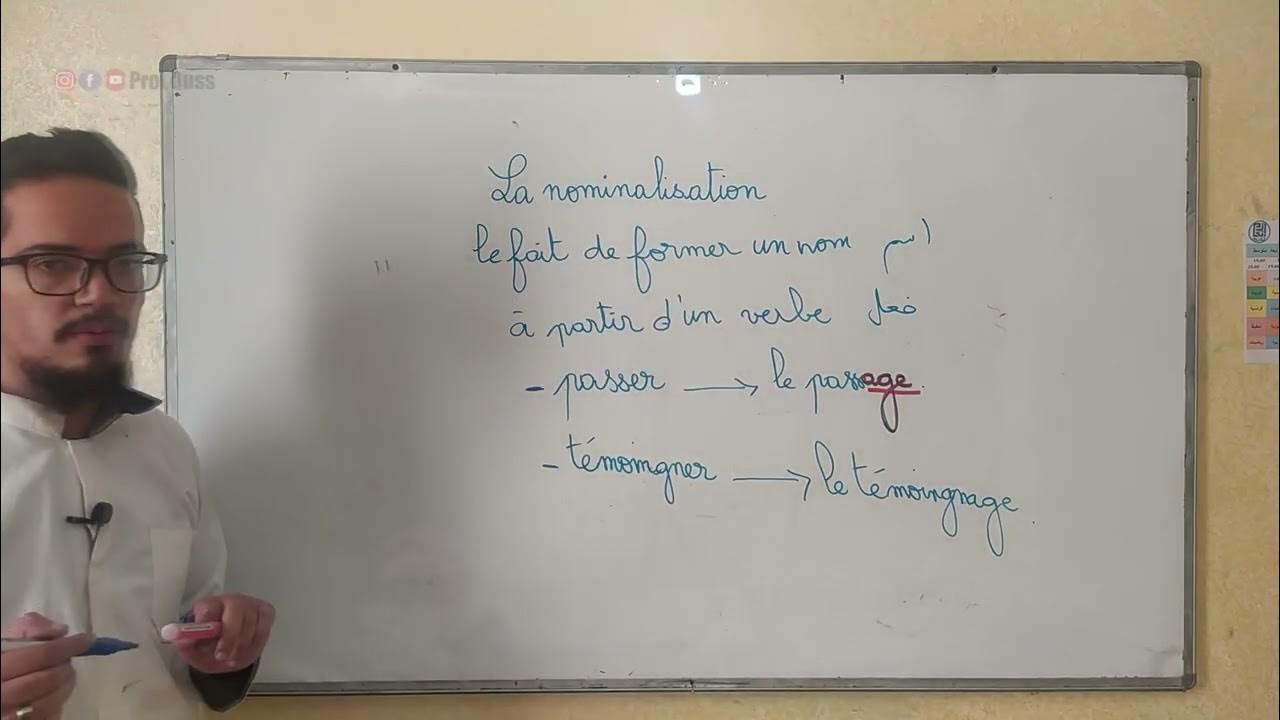 Prof Ouss
La nominalisation
le fait de former un nom اسم
à partir d'un verbe فعل
- passer → le passage
- témoingner → le témoingnage